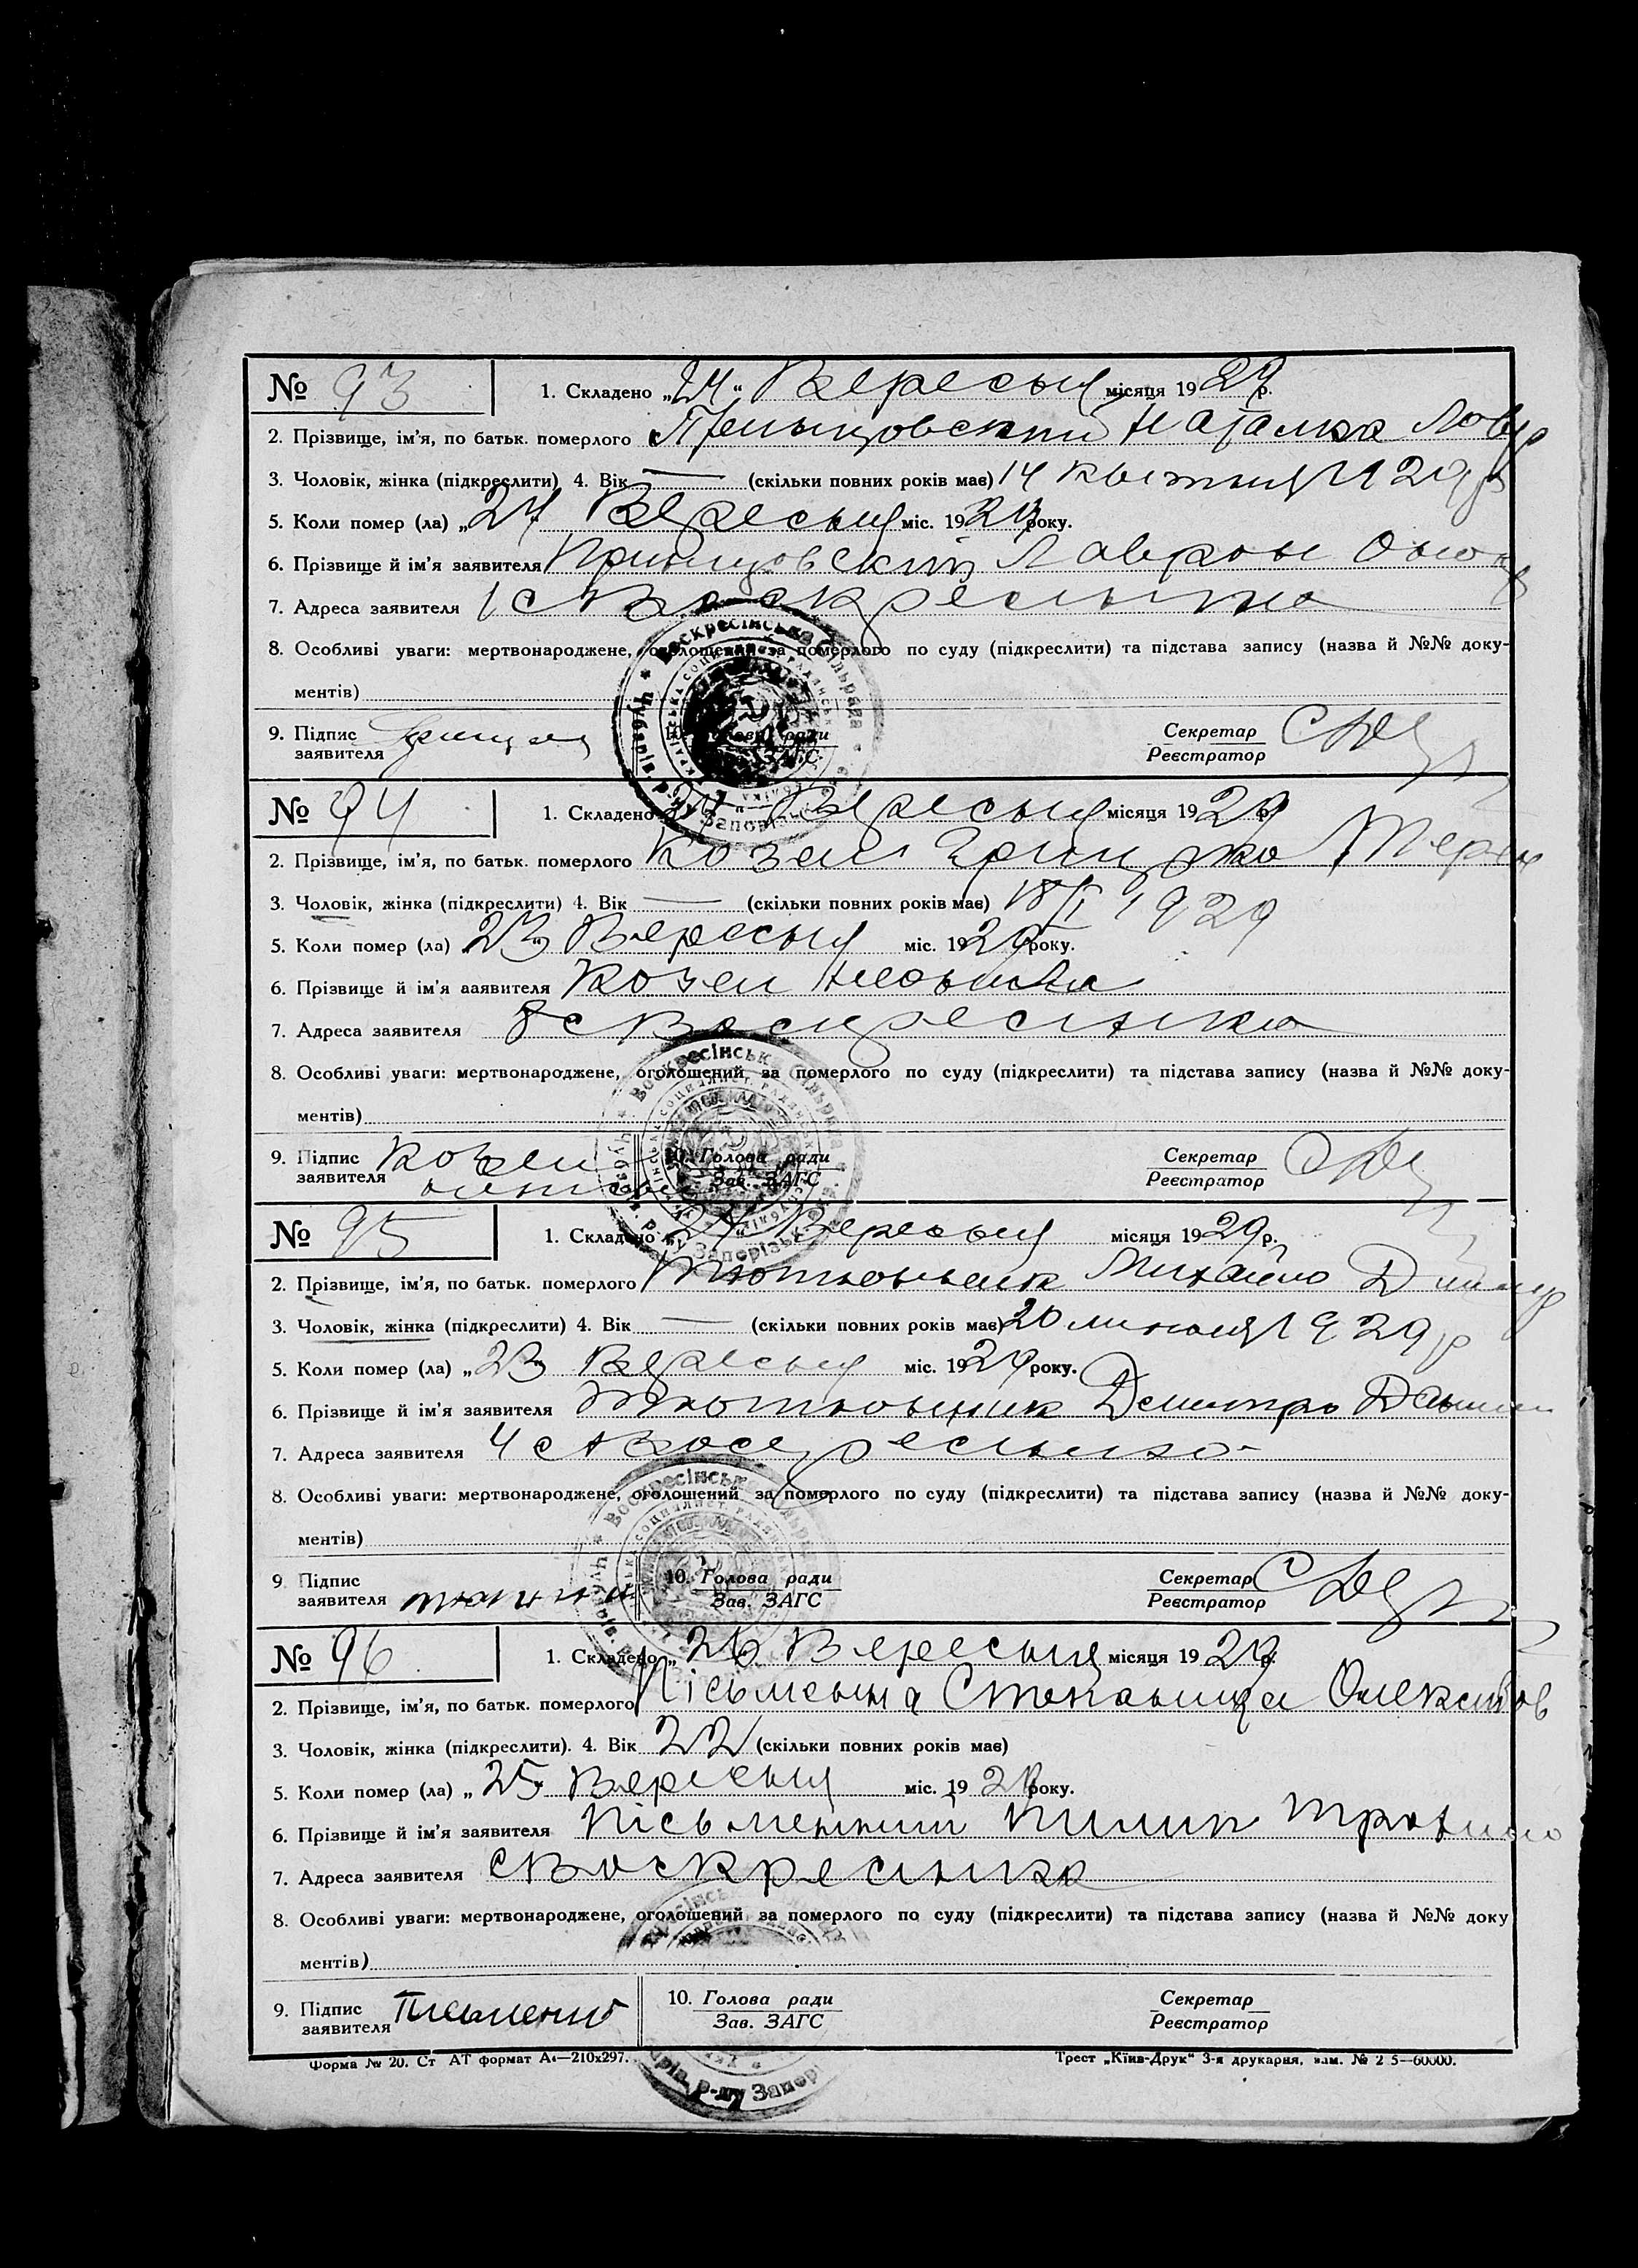 № 93 1. Складено „24“ Вересня місяця 1929 р.
2. Прізвище, ім'я, по батьк. померлого Наталка Лавр
3. Чоловік, жінка (підкреслити) 4. Вік — (скільки повних років має) 14 квітня 1929 р
5. Коли помер (ла) „24 Вересня міс. 1929 року.
6. Прізвище й ім'я заявителя
7. Адреса заявителя с Воскресінка
8. Особливі уваги: мертвонароджене, оголошений за померлого по суду (підкреслити) та підстава запису (назва й №№ доку-
ментів)
9. Підпис заявителя 10. Голова ради Зав. ЗАГС Секретар Реєстратор
№ 94 1. Складено 24 Вересня місяця 1929 р.
2. Прізвище, ім'я, по батьк. померлого Козел Грицько
3. Чоловік, жінка (підкреслити) 4. Вік — (скільки повних років має) 18/I 1929
5. Коли помер (ла) 23 Вересня міс. 1929 року.
6. Прізвище й ім'я ааявителя Козел
7. Адреса заявителя с Воскресінка
8. Особливі уваги: мертвонароджене, оголошений за померлого по суду (підкреслити) та підстава запису (назва й №№ доку-
ментів)
9. Підпис заявителя Козел 10. Голова ради Зав. ЗАГС Секретар Реєстратор
№ 95 1. Складено 24 Вересня місяця 1929 р.
2. Прізвище, ім'я, по батьк. померлого Тютюнник Михайло Дмитр
3. Чоловік, жінка (підкреслити) 4. Вік — (скільки повних років має) 20 липня 1929 р
5. Коли помер (ла) „23 Вересня міс. 1929 року.
6. Прізвище й ім'я заявителя Тютюнник Дмитро
7. Адреса заявителя 4 с Воскресінка
8. Особливі уваги: мертвонароджене, оголошений за померлого по суду (підкреслити) та підстава запису (назва й №№ доку-
ментів)
9. Підпис заявителя 10. Голова ради Зав. ЗАГС Секретар Реєстратор
№ 96 1. Складено „26 Вересня місяця 1929 р.
2. Прізвище, ім'я, по батьк. померлого Письменна Степанида Олексієв
3. Чоловік, жінка (підкреслити). 4. Вік 22 (скільки повних років має)
5. Коли помер (ла) „25 Вересня міс. 1929 року.
6. Прізвище й ім'я заявителя Письменний Пилип Трохимо
7. Адреса заявителя с Воскресінка
8. Особливі уваги: мертвонароджене, оголошений за померлого по суду (підкреслити) та підстава запису (назва й №№ доку
ментів)
9. Підпис заявителя Письменний 10. Голова ради Зав. ЗАГС Секретар Реєстратор
Форма № 20. Ст АТ формат А4—210x297. Трест „Київ-Друк“ 3-я друкарня, зам. №